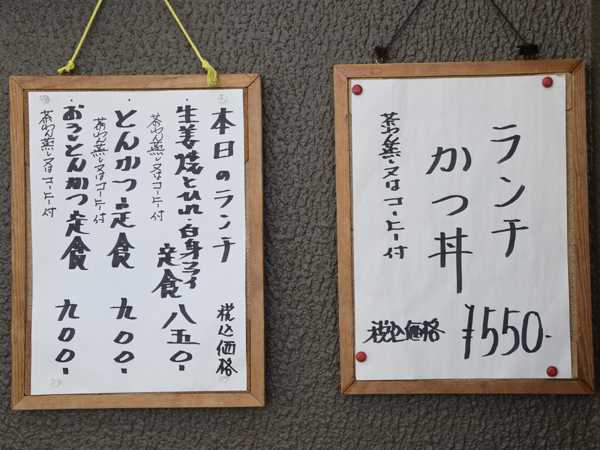 本日のランチ 税込価格
・生姜焼とひれ・白身フライ
定食 八五〇・
茶わん蒸し又はコーヒー付
・とんかつ定食 九〇〇・
茶わん蒸し又はコーヒー付
・おろしとんかつ定食 九〇〇・
茶わん蒸し又はコーヒー付
ランチ
かつ丼
茶わん蒸し又はコーヒー付
税込価格 ¥550-